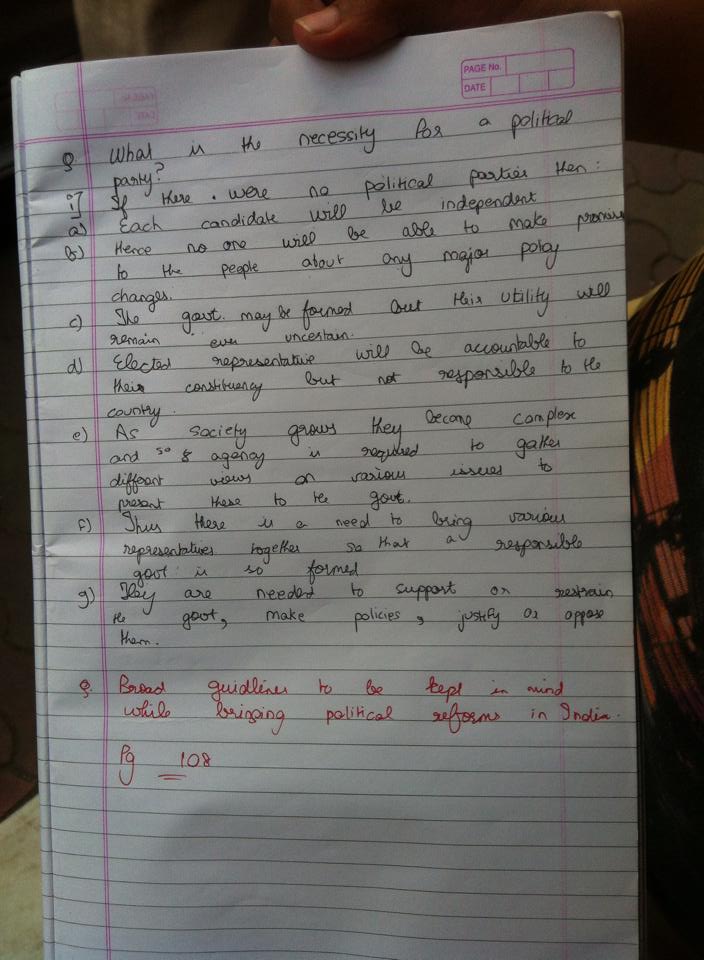 PAGE No.
DATE
Q What is the necessity for a political
party?
i] If there were no political parties then:
a) Each candidate will be independent
b) Hence no one will be able to make promises
to the people about any major policy
changes.
c) The govt. may be formed but their utility will
remain ever uncertain.
d) Elected representative will be accountable to
their constituency but not responsible to the
country.
e) As society grows they become complex
and so agency is required to gather
different views on various issues to
present these to the govt.
f) Thus there is a need to bring various
representatives together so that a responsible
govt is so formed
g) They are needed to support or restrain
the govt, make policies, justify or oppose
them.
Q. Broad guidlines to be kept in mind
while bringing political reforms in India.
Pg 108